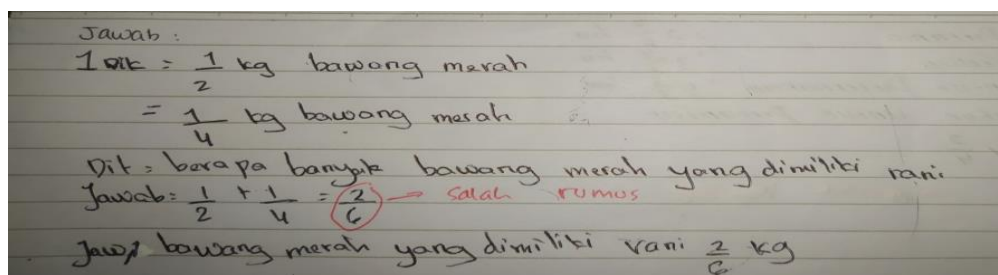 Jawab :
1 Dik = 1/2 kg bawang merah
= 1/4 kg bawang merah
Dit = berapa banyak bawang merah yang dimiliki rani
Jawab = 1/2 + 1/4 = 2/6 → Salah rumus
Jawab bawang merah yang dimiliki rani 2/6 kg